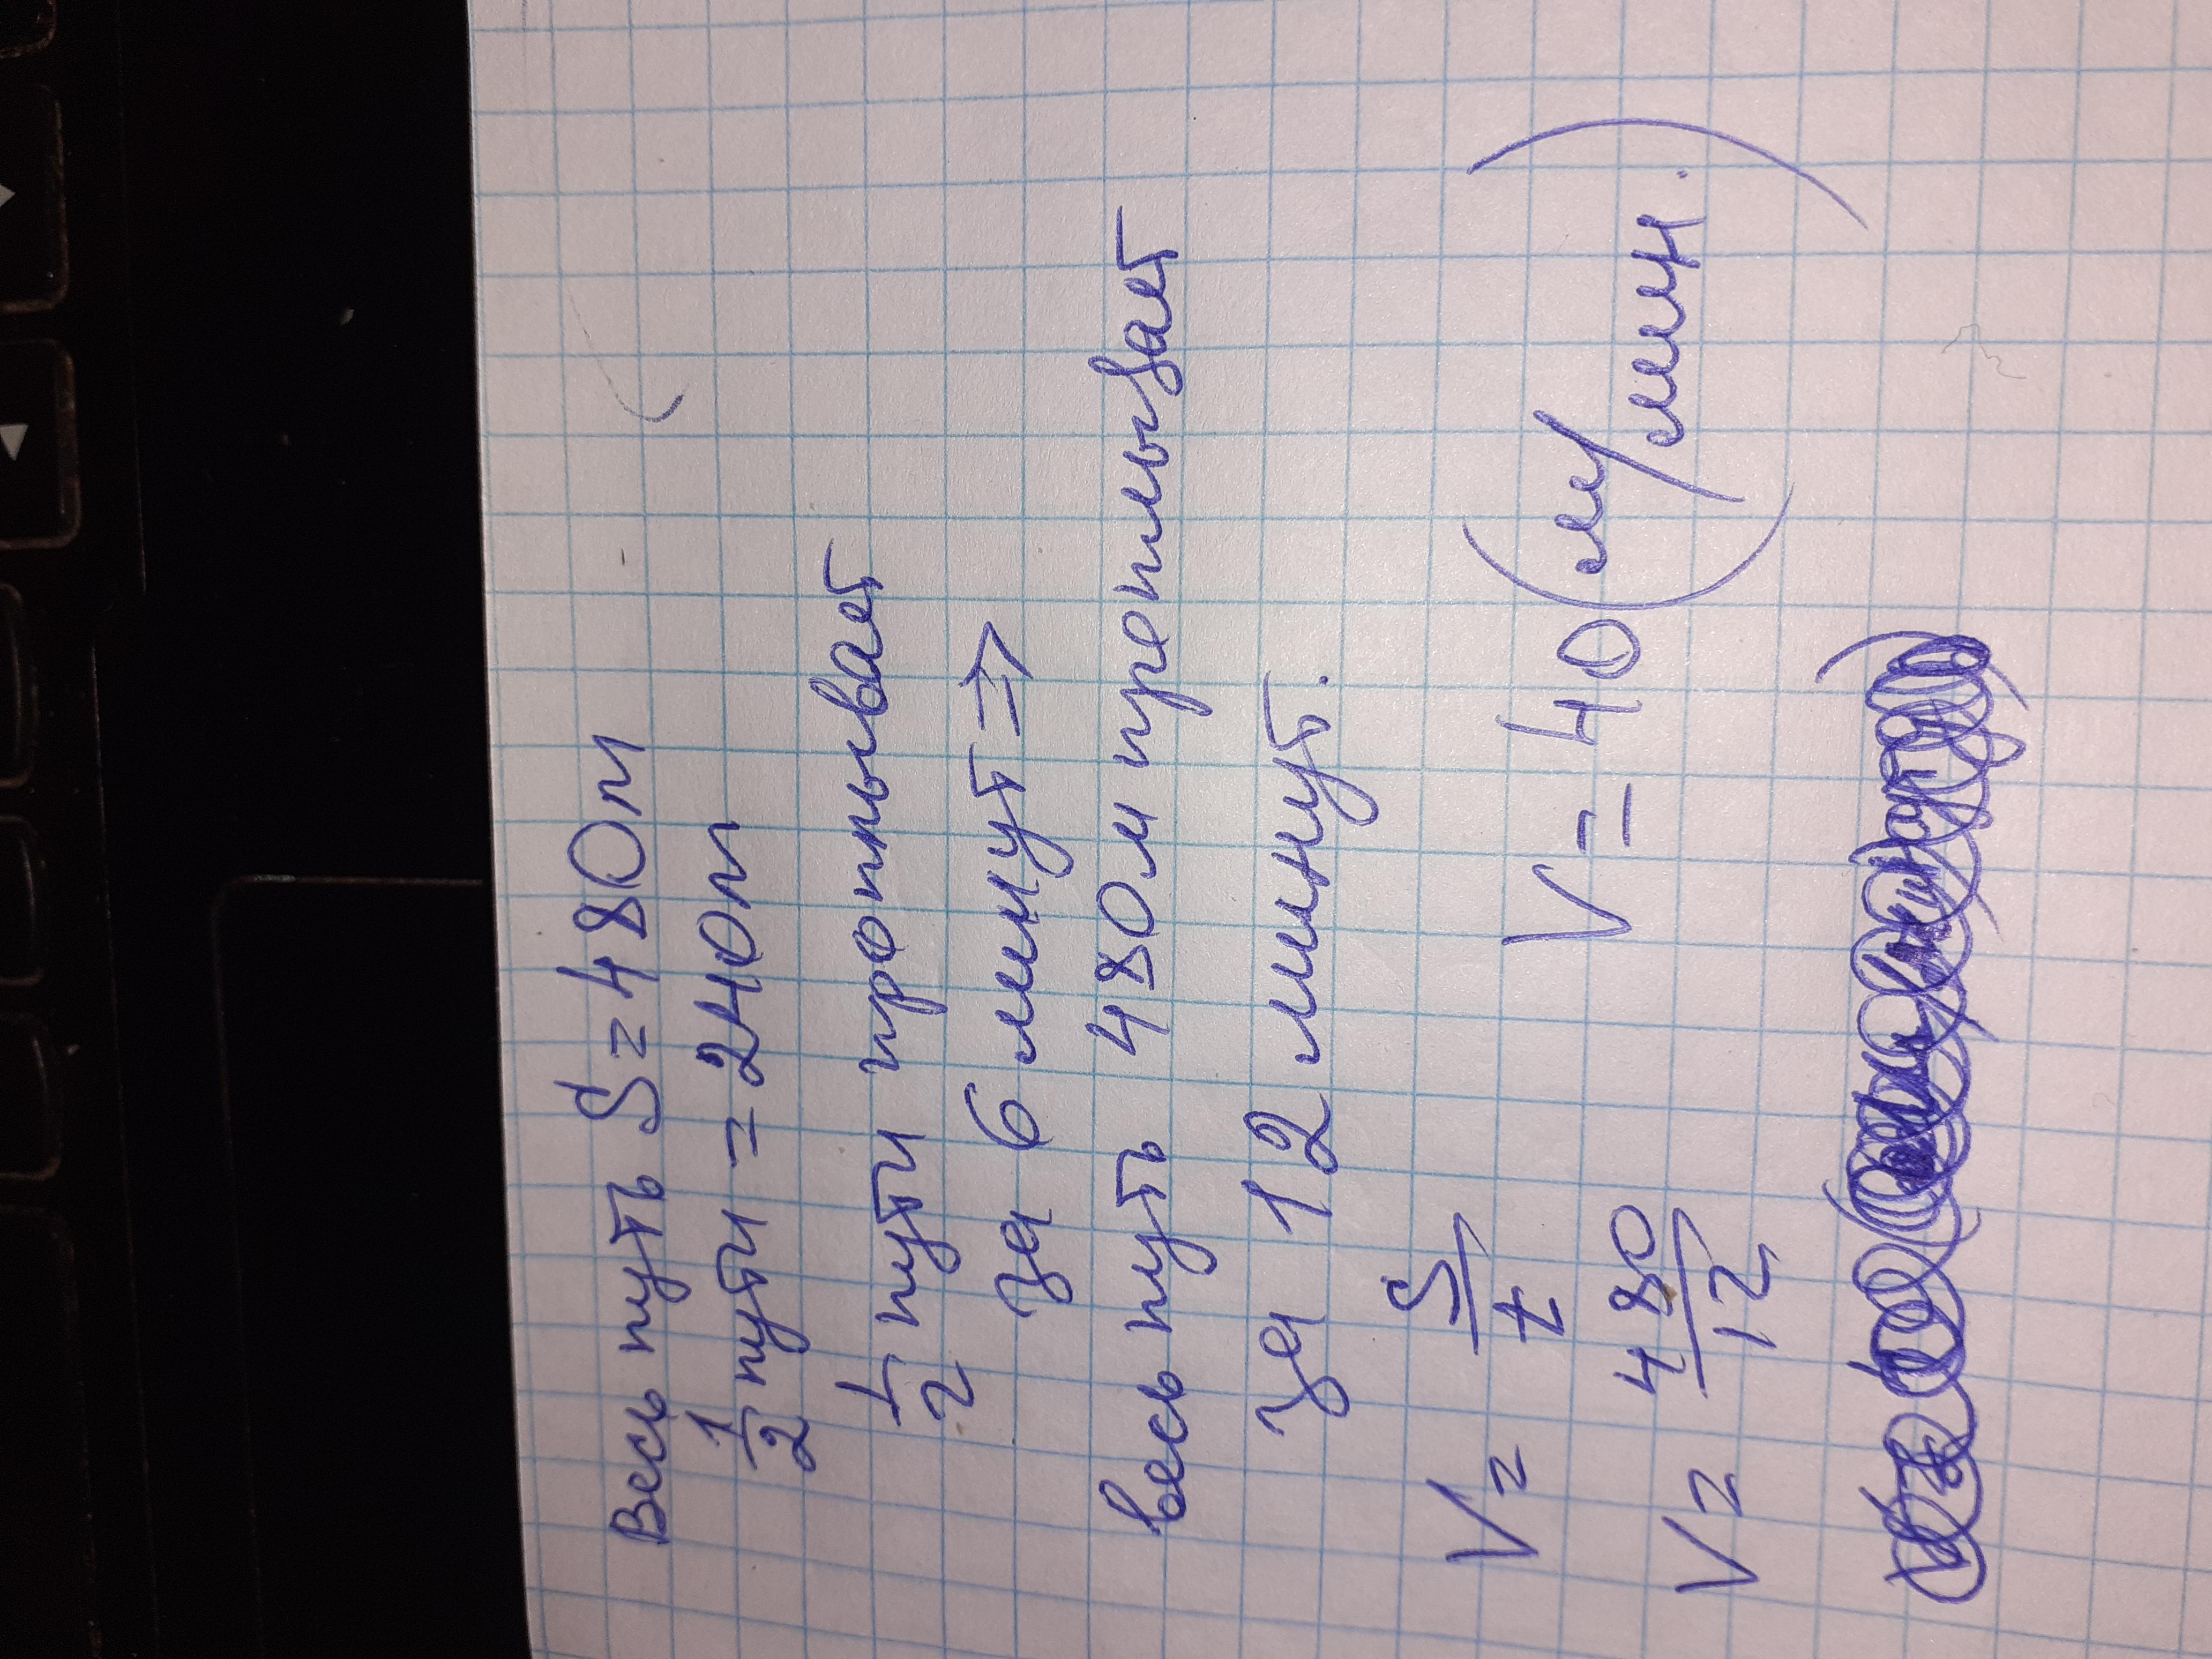 Весь путь S=480м
1/2 пути = 240м
1/2 пути проплывает
за 6 минут =>
весь путь 480м проплывает
за 12 минут.
V = S/t
V = 480/12 V = 40 (м/мин.)